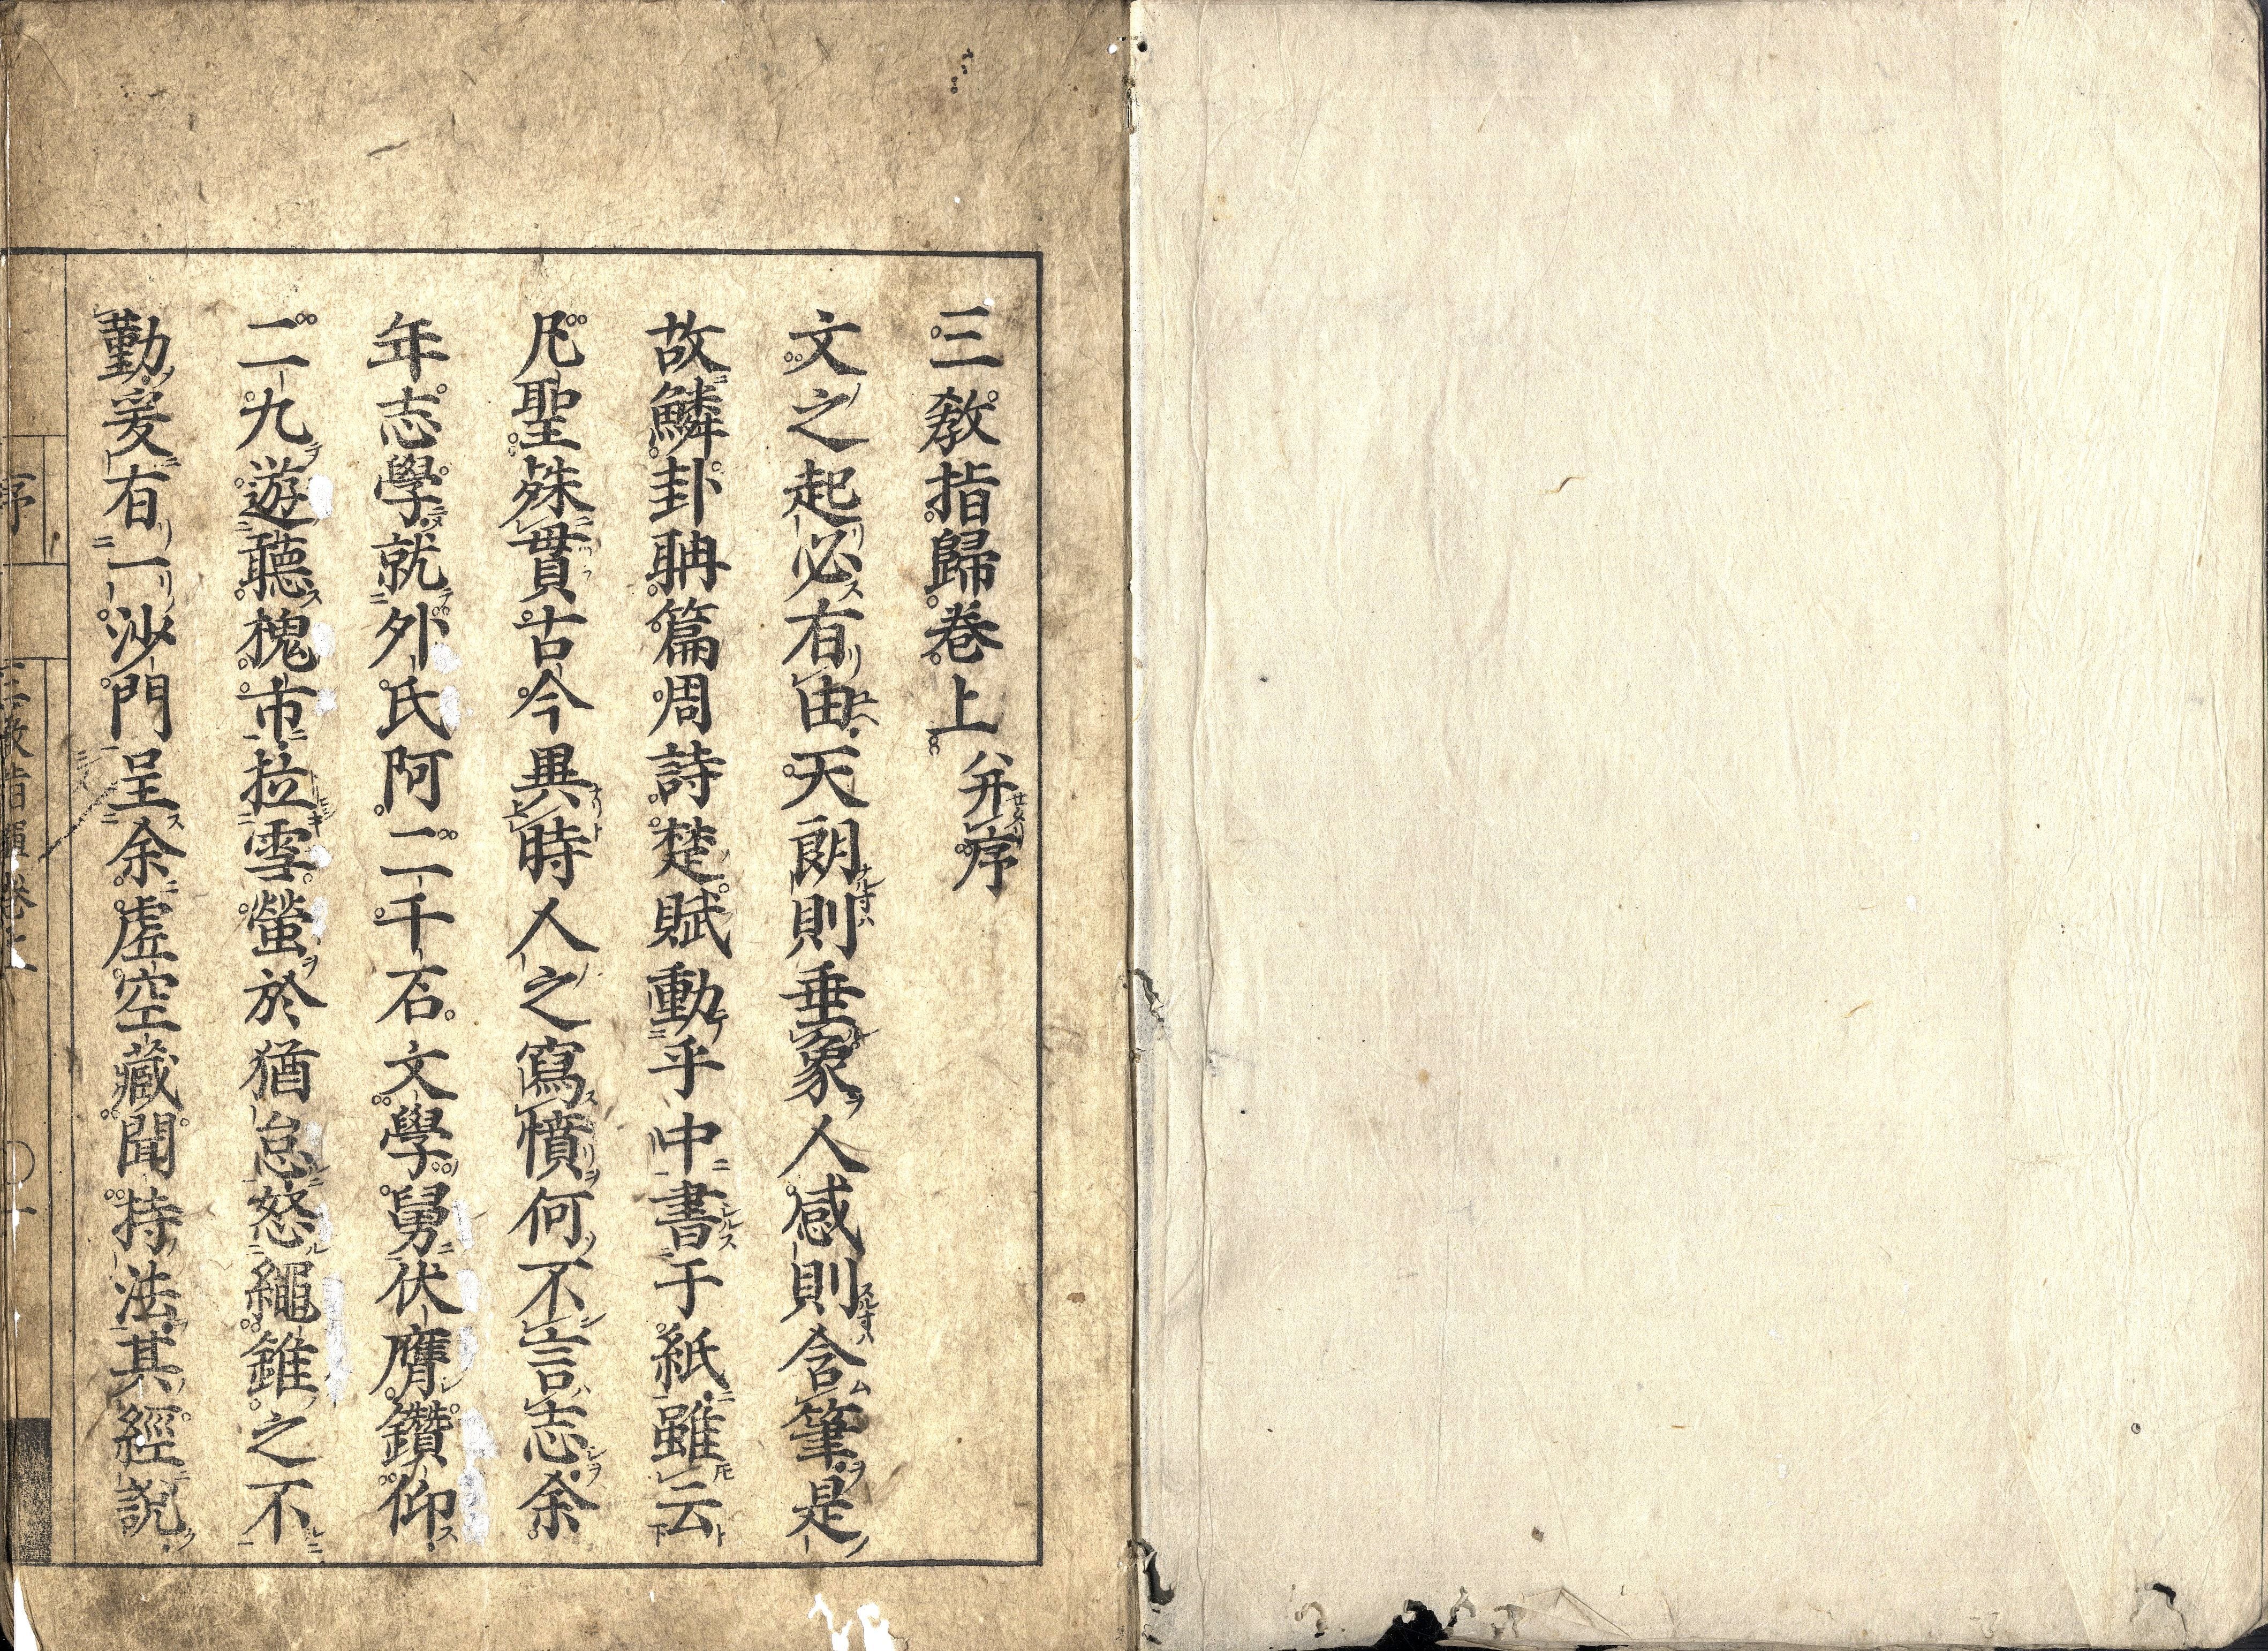 三教指歸卷上 并序
文之起必有由天朗則垂象人感則含筆是
故鱗卦聃篇周詩楚賦動乎中書于紙雖云
凡聖殊貫古今異時人之寫憤何不言志余
年志學就外氏阿二千石文學舅伏膺鑽仰
二九遊聽槐市拉雪螢於猶怠怒繩錐之不
勤爰有一沙門呈余虛空藏聞持法其經說
序 三教指歸卷上 〇 一